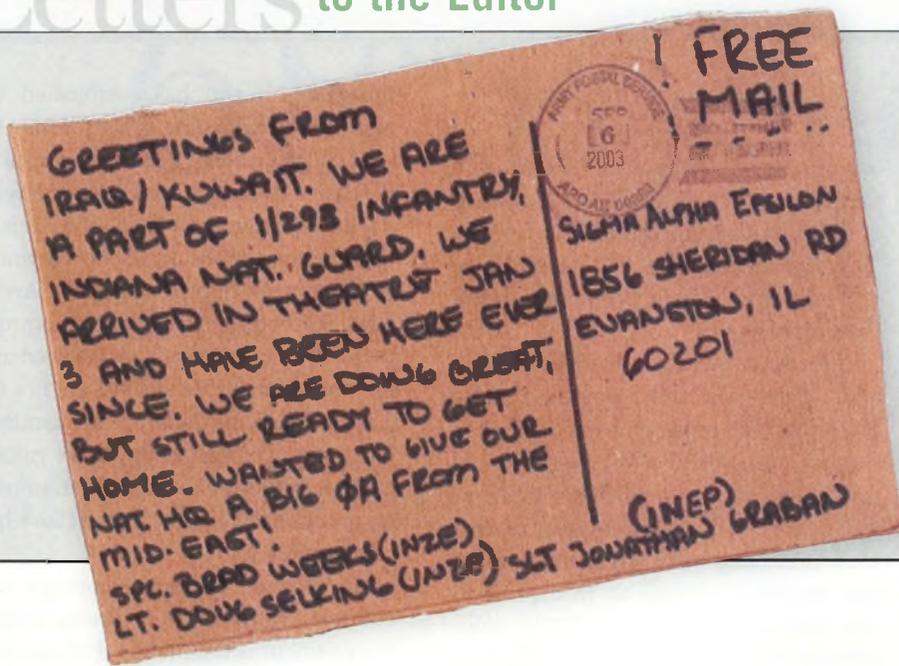 Letters
to the Editor
GREETINGS FROM
IRAQ/KUWAIT. WE ARE
A PART OF 1/293 INFANTRY,
INDIANA NAT. GUARD. WE
ARRIVED IN THEATRE JAN
3 AND HAVE BEEN HERE EVER
SINCE. WE ARE DOING GREAT,
BUT STILL READY TO GET
HOME. WANTED TO GIVE OUR
NAT. HQ A BIG ΦA FROM THE
MID-EAST!
SPC. BRAD WEEKS (INZE)
LT. DOUG SELKING (INZE) SGT JONATHAN GRABAN
(INEP)
FREE
MAIL
ARMY POSTAL SERVICE
SEP
6
2003
APO AE
SIGMA ALPHA EPSILON
1856 SHERIDAN RD
EVANSTON, IL
60201